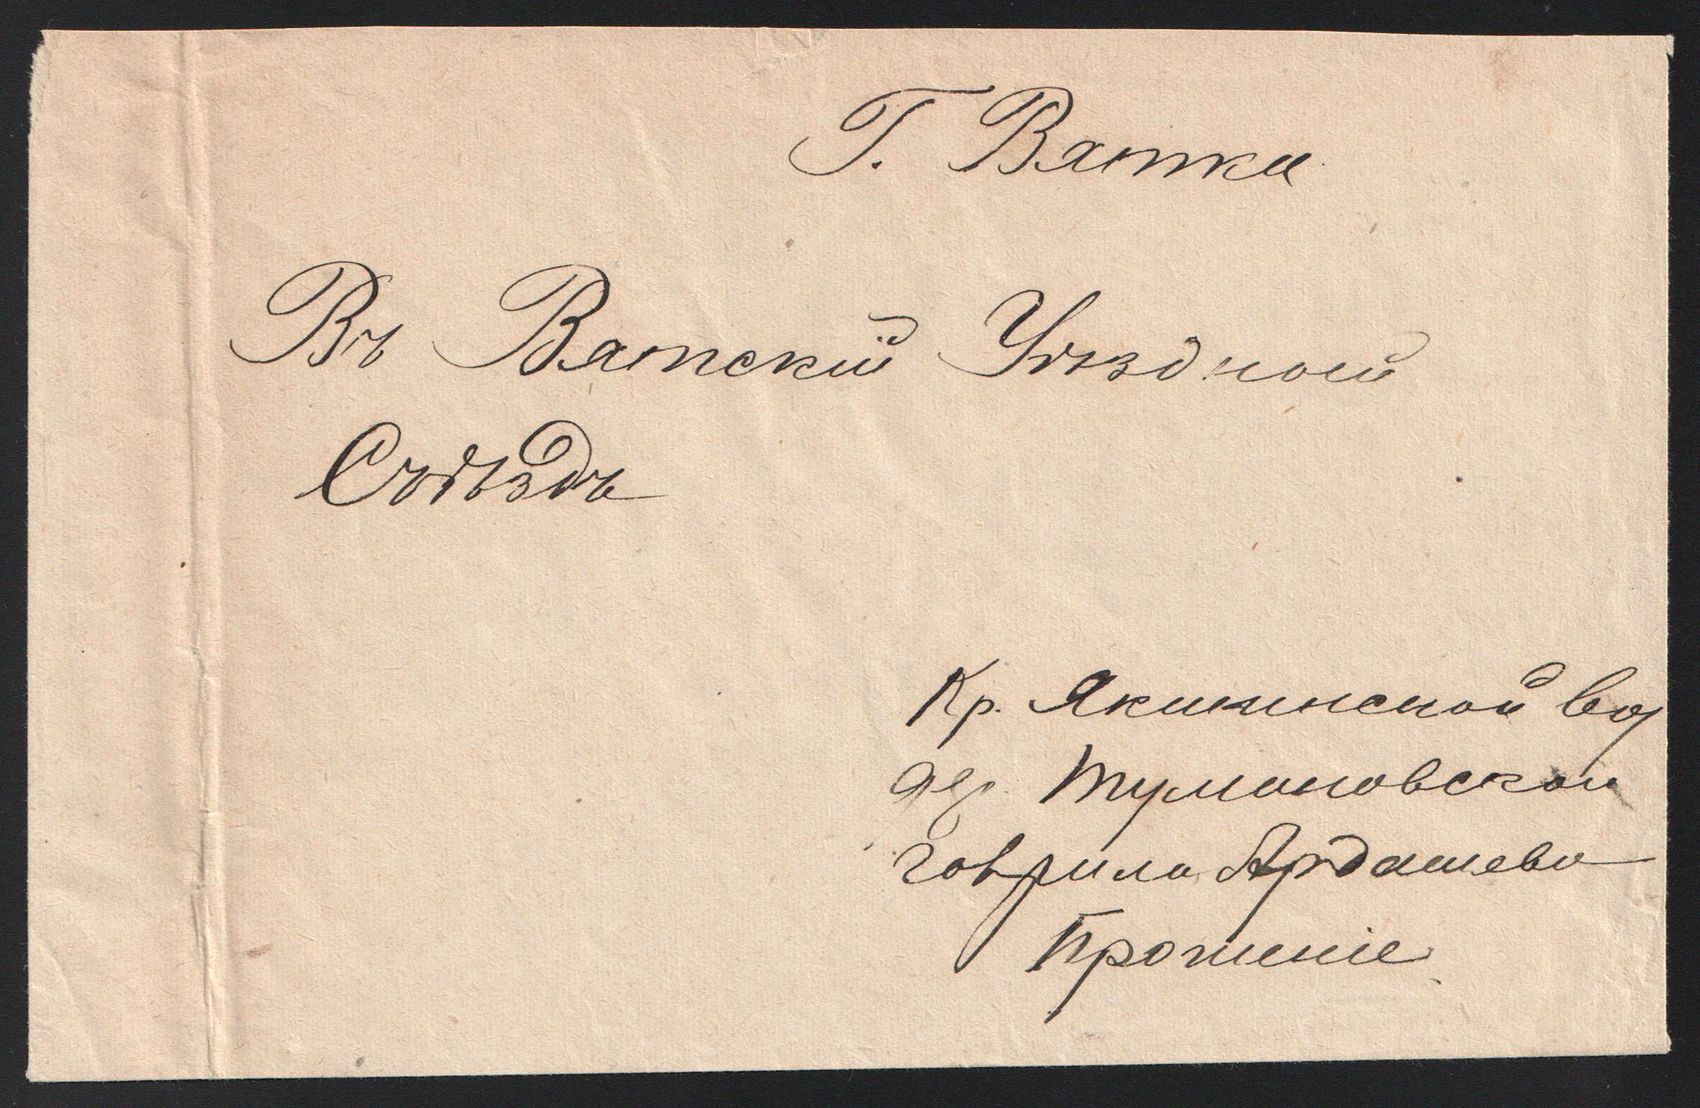 Г. Вятка
Въ Вятскій Уѣздный
Съѣздъ
Кр. Якшинской вол
дер. Тумановской
Гаврила Ардашева
Прошеніе